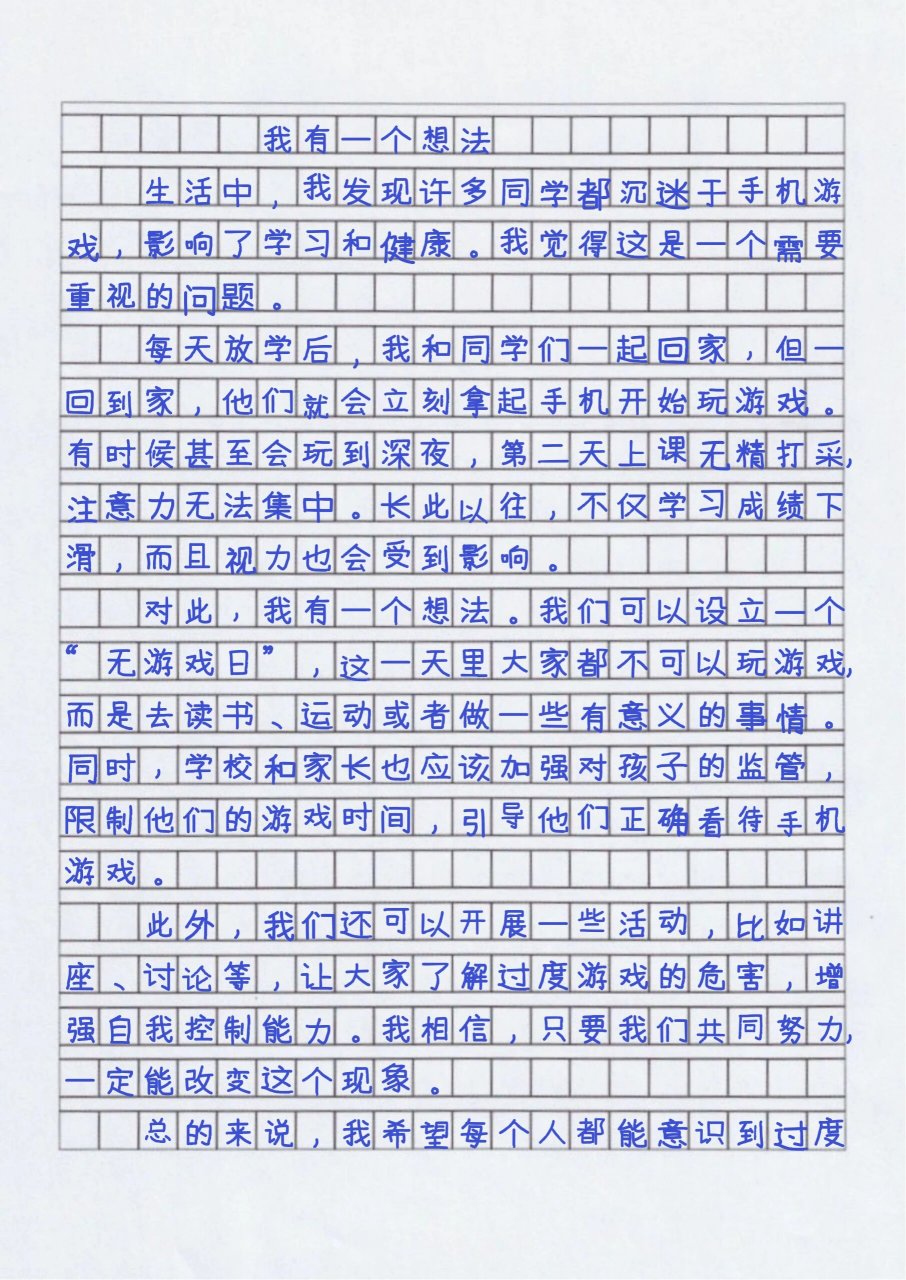 我有一个想法
生活中，我发现许多同学都沉迷于手机游
戏，影响了学习和健康。我觉得这是一个需要
重视的问题。
每天放学后，我和同学们一起回家，但一
回到家，他们就会立刻拿起手机开始玩游戏。
有时候甚至会玩到深夜，第二天上课无精打采，
注意力无法集中。长此以往，不仅学习成绩下
滑，而且视力也会受到影响。
对此，我有一个想法。我们可以设立一个
“无游戏日”，这一天里大家都不可以玩游戏，
而是去读书、运动或者做一些有意义的事情。
同时，学校和家长也应该加强对孩子的监管，
限制他们的游戏时间，引导他们正确看待手机
游戏。
此外，我们还可以开展一些活动，比如讲
座、讨论等，让大家了解过度游戏的危害，增
强自我控制能力。我相信，只要我们共同努力，
一定能改变这个现象。
总的来说，我希望每个人都能意识到过度